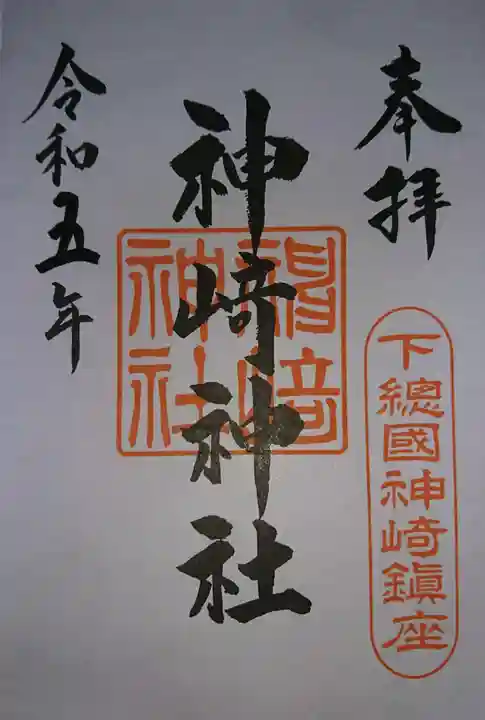 奉拝
下總國神崎鎮座
神崎神社
神崎神社
令和五年